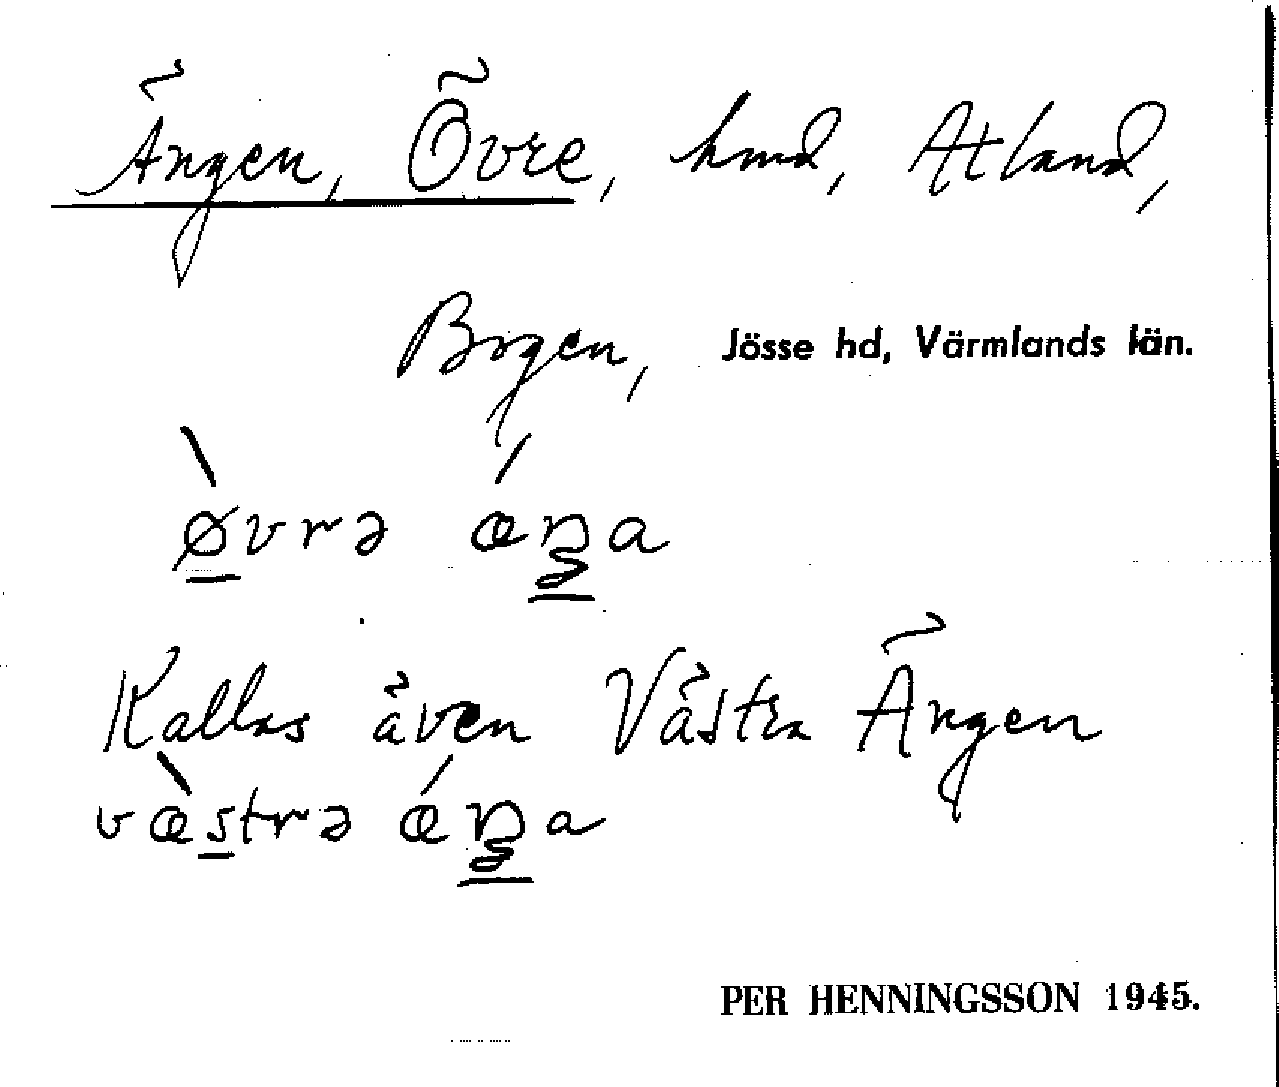 Ängen, Övre, hmd, Åtland,
Bogen, Jösse hd, Värmlands län.
ø̀vrə ǽŋa
Kallas även Västra Ängen
væ̀strə ǽŋa
PER HENNINGSSON 1945.